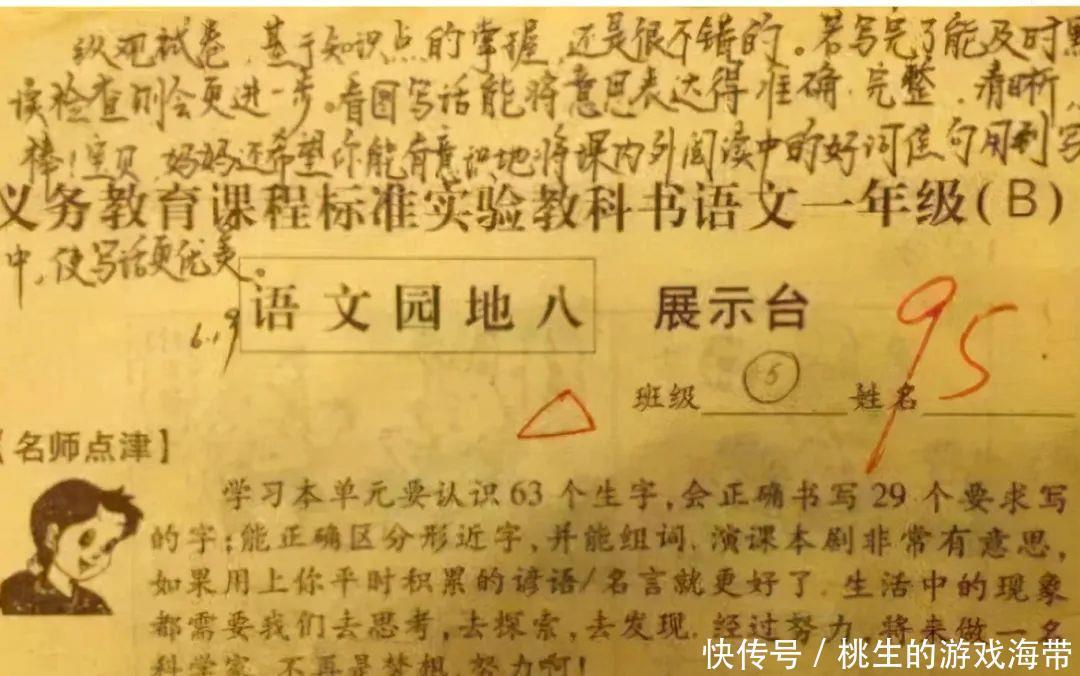 纵观试卷,基于知识点的掌握,还是很不错的。若写完了能及时
读检查则会更进一步。看图写话能将意思表达得准确、完整、清晰,
棒!宝贝,妈妈还希望你能有意识地将课内外阅读中的好词佳句用到写
义务教育课程标准实验教科书语文一年级(B)
中,使写话更优美。
6.19
语文园地八 展示台
95
班级 5 姓名
【名师点津】
学习本单元要认识63个生字,会正确书写29个要求写
的字;能正确区分形近字,并能组词。演课本剧非常有意思,
如果用上你平时积累的谚语/名言就更好了。生活中的现象
都需要我们去思考,去探索,去发现。经过努力,将来做一名
科学家,不再是梦想,努力啊!
快传号/桃生的游戏海带